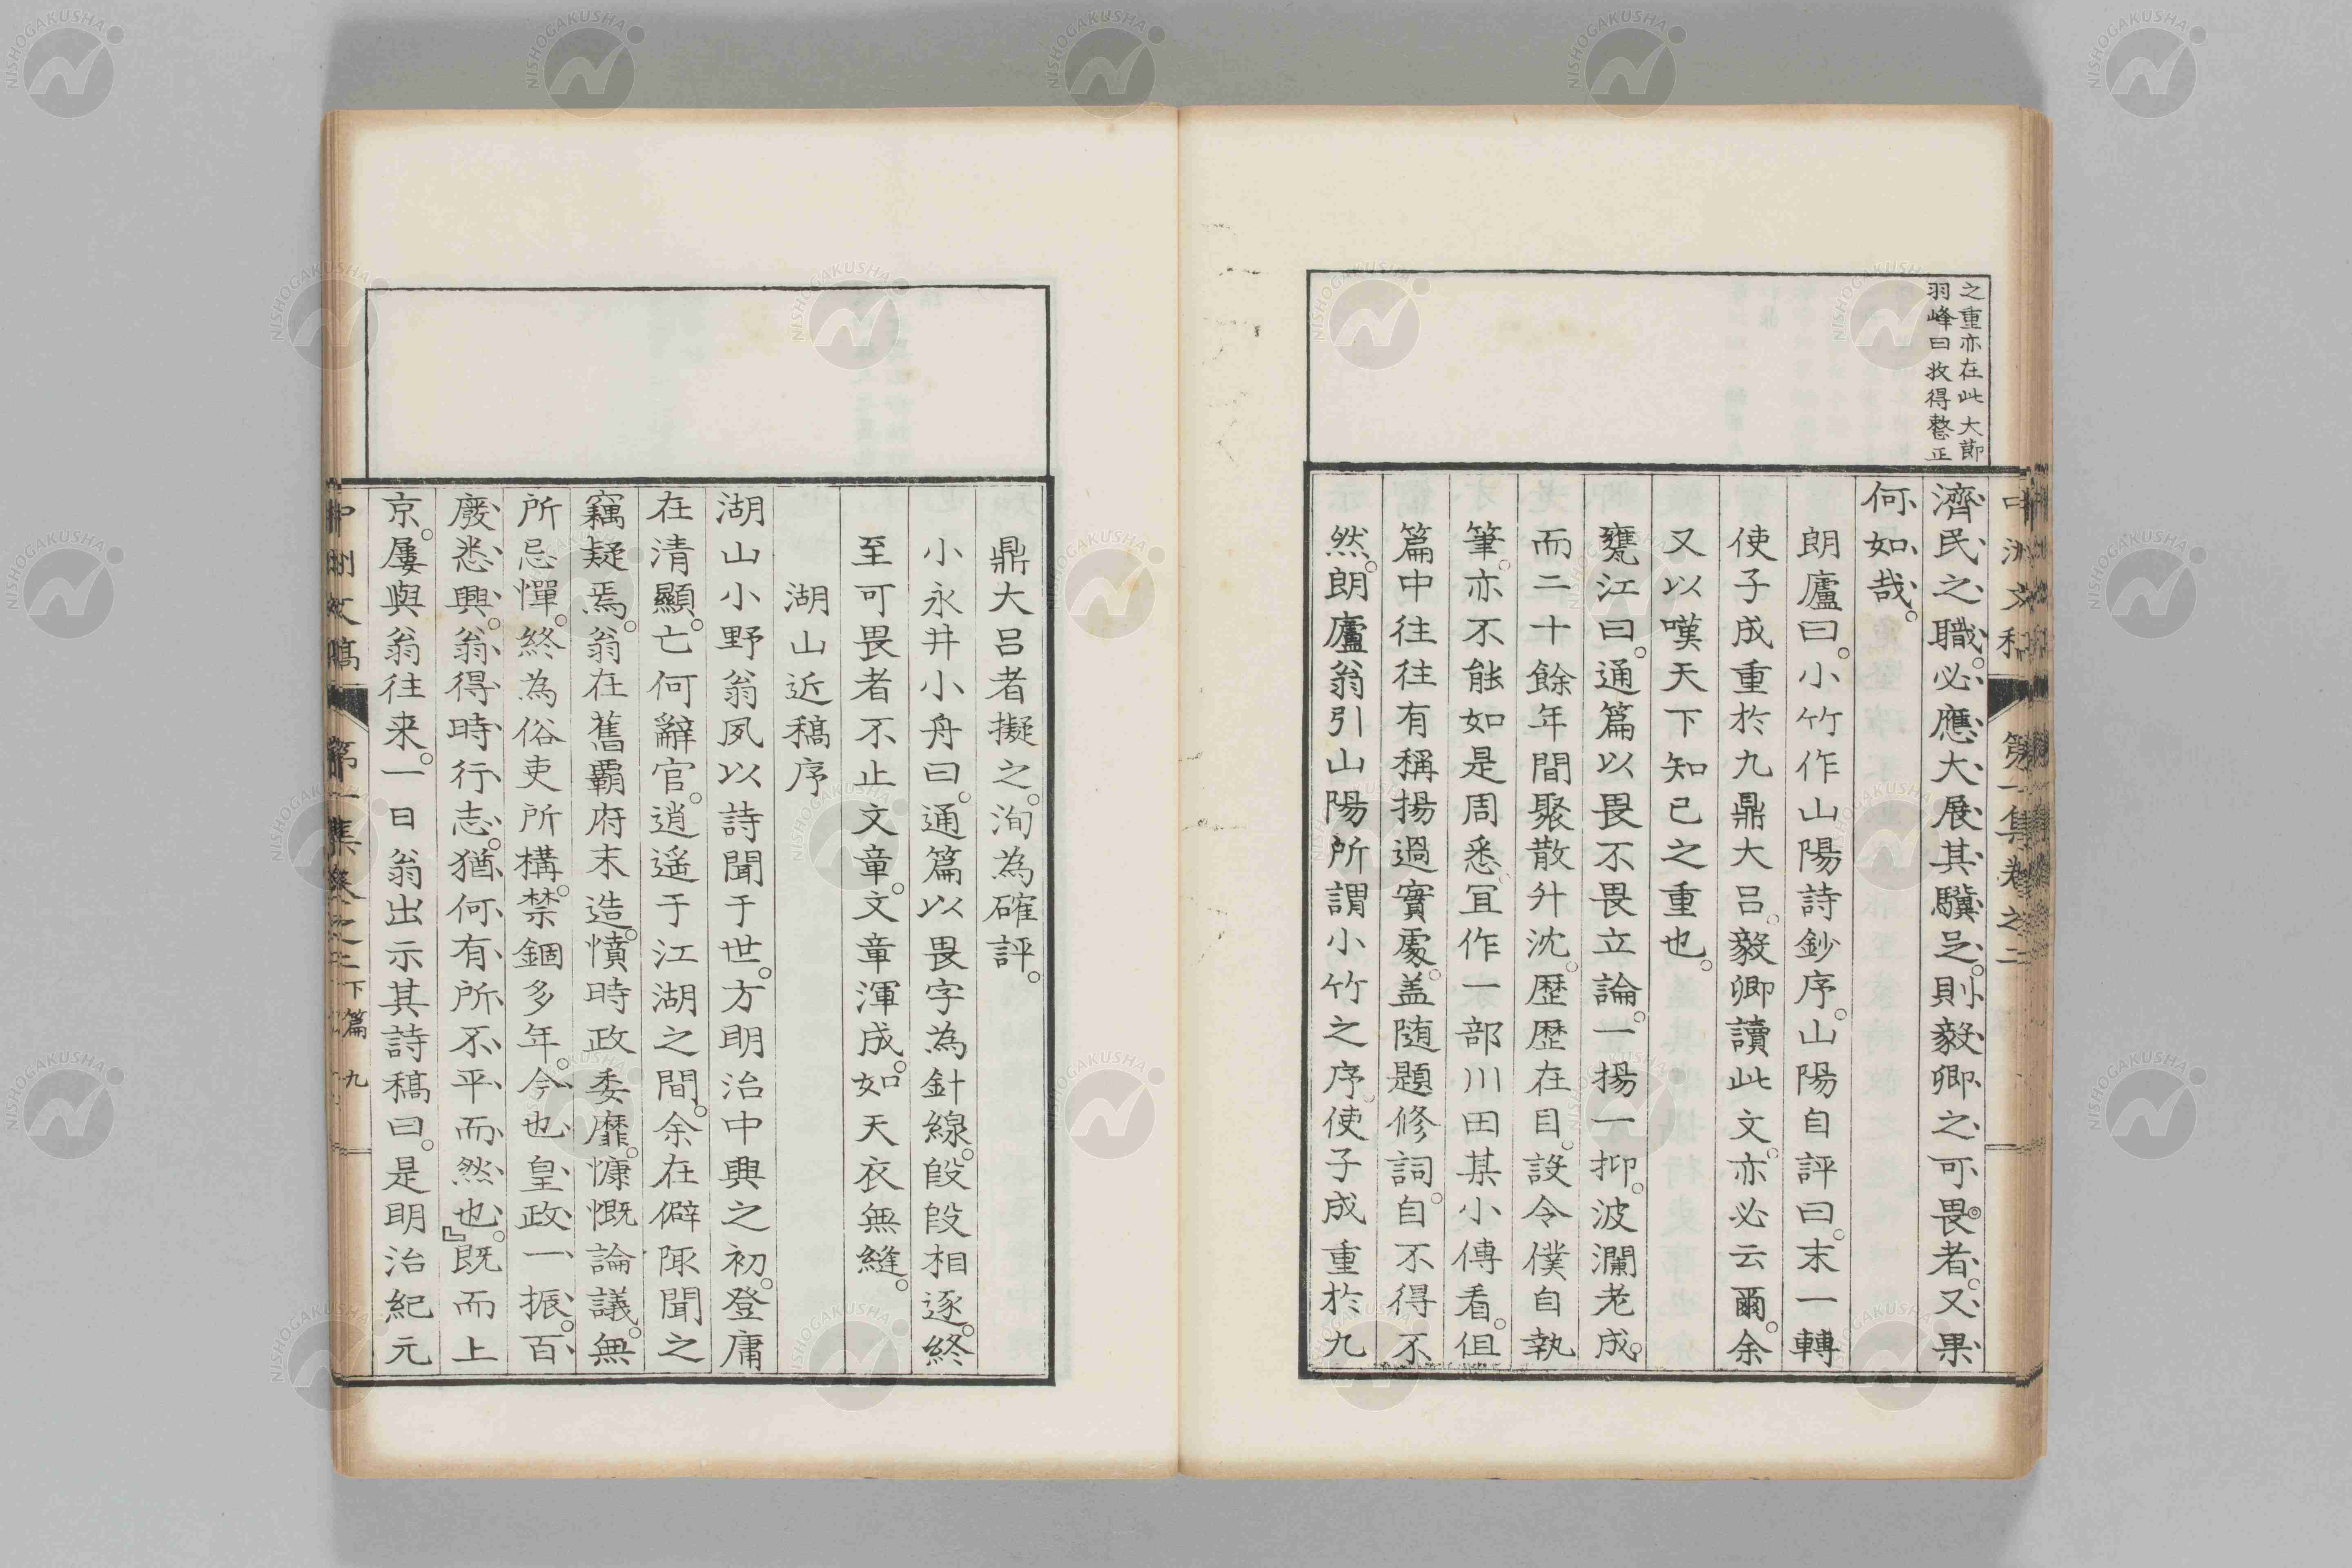 之重亦在此大節
羽峰曰收得整正
中洲文稿 第一集卷之二
濟民之職。必應大展其驥足。則毅卿之可畏者。又果
何如哉。
朗廬曰。小竹作山陽詩鈔序。山陽自評曰。末一轉
使子成重於九鼎大呂。毅卿讀此文。亦必云爾。余
又以嘆天下知己之重也。
甕江曰。通篇以畏不畏立論。一揚一抑。波瀾老成。
而二十餘年間聚散升沈。歷歷在目。設令僕自執
筆。亦不能如是周悉。宜作一部川田某小傳看。但
篇中往往有稱揚過實處。盖随題修詞。自不得不
然。朗廬翁引山陽所謂小竹之序。使子成重於九
鼎大呂者擬之。洵為確評。
小永井小舟曰。通篇以畏字為針線。段段相逐。終
至可畏者不止文章。文章渾成。如天衣無縫。
湖山近稿序
湖山小野翁夙以詩聞于世。方明治中興之初。登庸
在清顯。亡何辭官。逍遙于江湖之間。余在僻陬聞之
竊疑焉。翁在舊霸府末造。憤時政委靡。慷慨論議。無
所忌憚。終為俗吏所構。禁錮多年。今也皇政一振。百
廢悉興。翁得時行志。猶何有所不平而然也。』既而上
京。屢與翁往来。一日翁出示其詩稿曰。是明治紀元
中洲文稿 第一集卷之二下篇 九